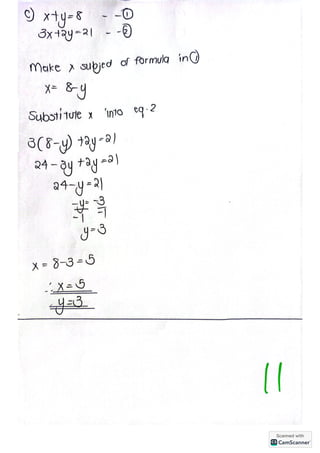 c) x+y=8 - -①
3x+2y=21 - -②
Make x subject of formula in①
x= 8-y
Substitute x into eq.2
3(8-y) +2y=21
24-3y +2y=21
24-y=21
-y = -3
-1 -1
y=3
x = 8-3=5
∴ x=5
y=3
11
Scanned with
CS CamScanner